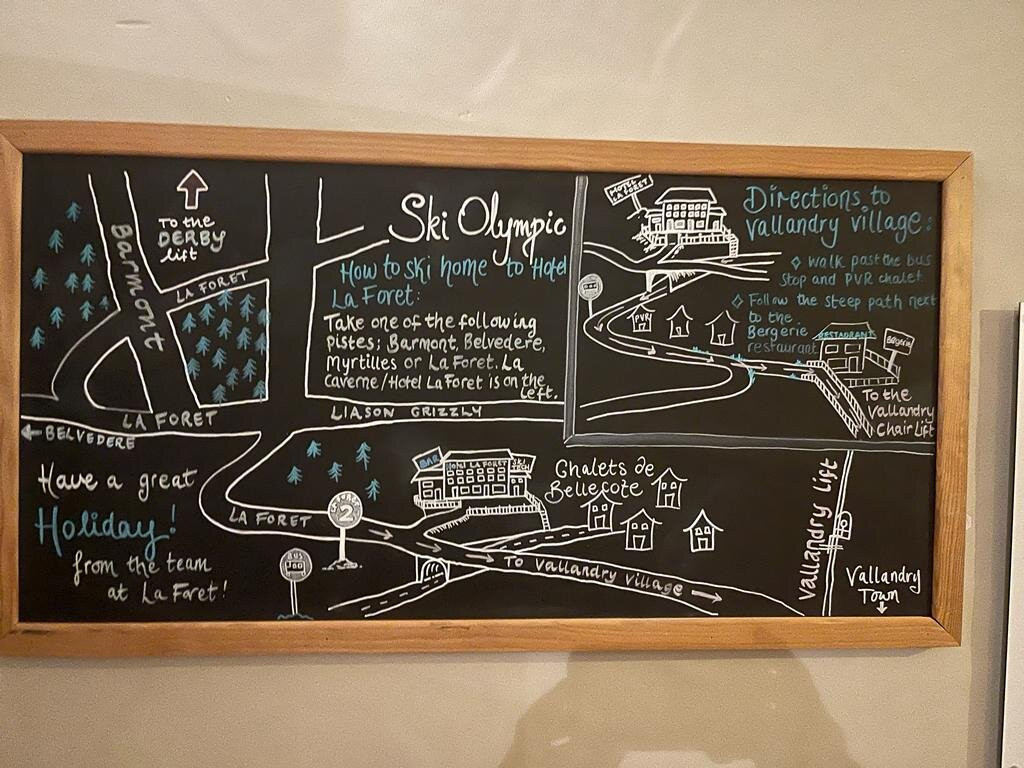 Barmont
To the
DERBY
lift
LA FORET
LA FORET
BELVEDERE
Ski Olympic
How to ski home to Hotel
La Foret:
Take one of the following
pistes; Barmont, Belvedere,
Myrtilles or La Foret. La
Caverne/Hotel La Foret is on the
left.
LIASON GRIZZLY
HOTEL
LA FORET
Directions to
Vallandry village:
◇ Walk past the bus
stop and PVR chalet
◇ Follow the steep path next
to the
Bergerie
restaurant
PVR
RESTAURANT
Bergerie
To the
Vallandry
Chair Lift
Have a great
Holiday!
from the team
at La Foret!
LA FORET
2
BUS
BAR
HOTEL LA FORET
SKI
TECH
Chalets de
Bellecote
To Vallandry village
Vallandry Lift
Vallandry
Town